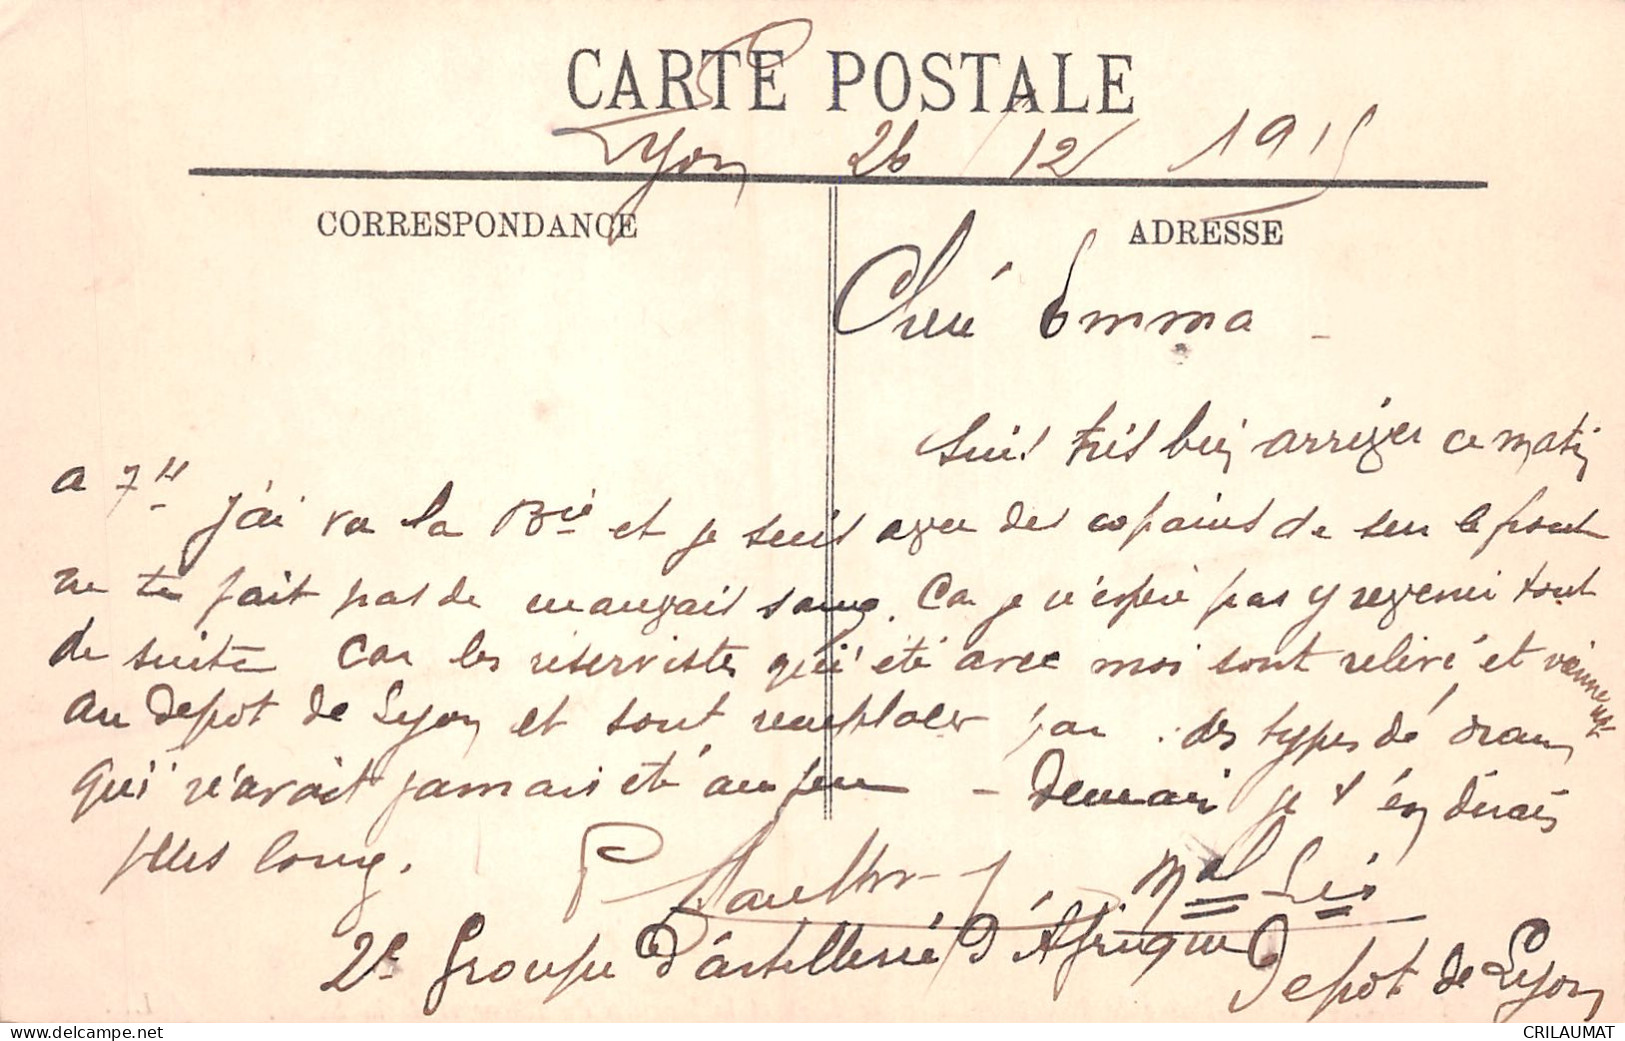 CARTE POSTALE
Lyon 26/12/1915
CORRESPONDANCE
ADRESSE
Cheré Emma
Suis très bien arriver ce matin
a 7H j'ai vu la Bie et je suis avec des copains de sur le front
ne te fait pas de mauvais sang. Car je n'espère pas y revenir tout
de suite Car les réservistes qui été avec moi sont relivé et viennent
au depot de Lyon et sont remplacer par des types dé oran
qui n'avait jamais été au feu - Demain je t'én dirais
plus long.
P Mal Lis
2e Groupe D'artillerié D'Afrique Depot de Lyon
www.delcampe.net
CRILAUMAT